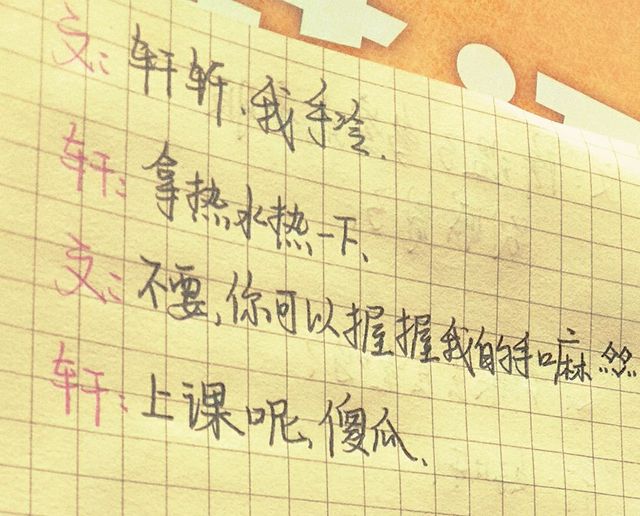 文:轩轩、我手冷、
轩:拿热水热一下、
文:不要,你可以握握我的手嘛
轩:上课呢、傻瓜、